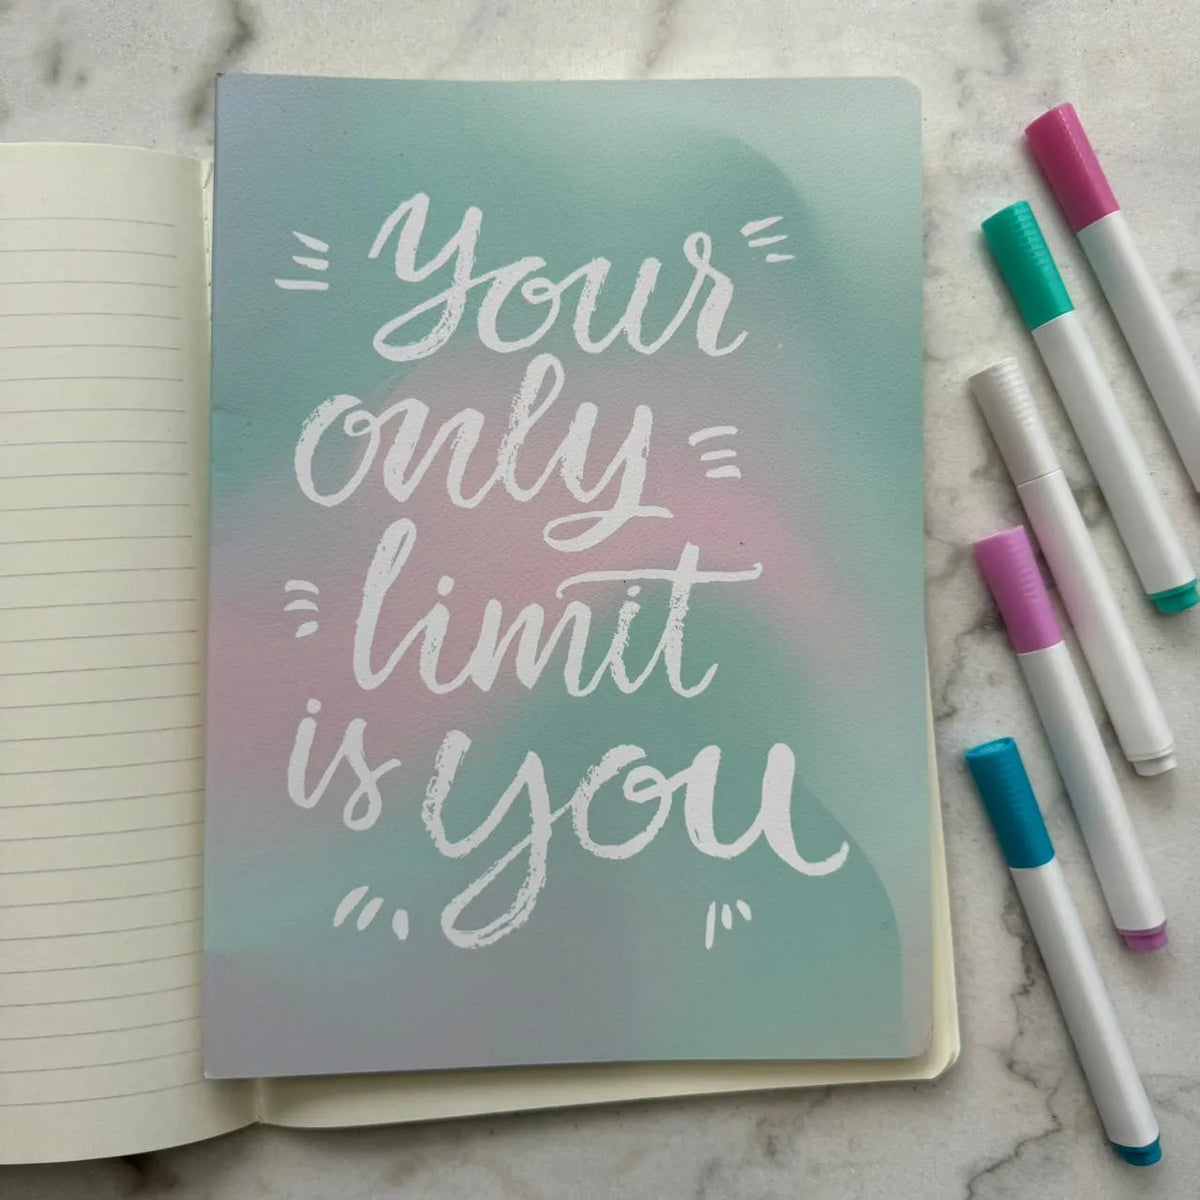 Your
only
limit
is you